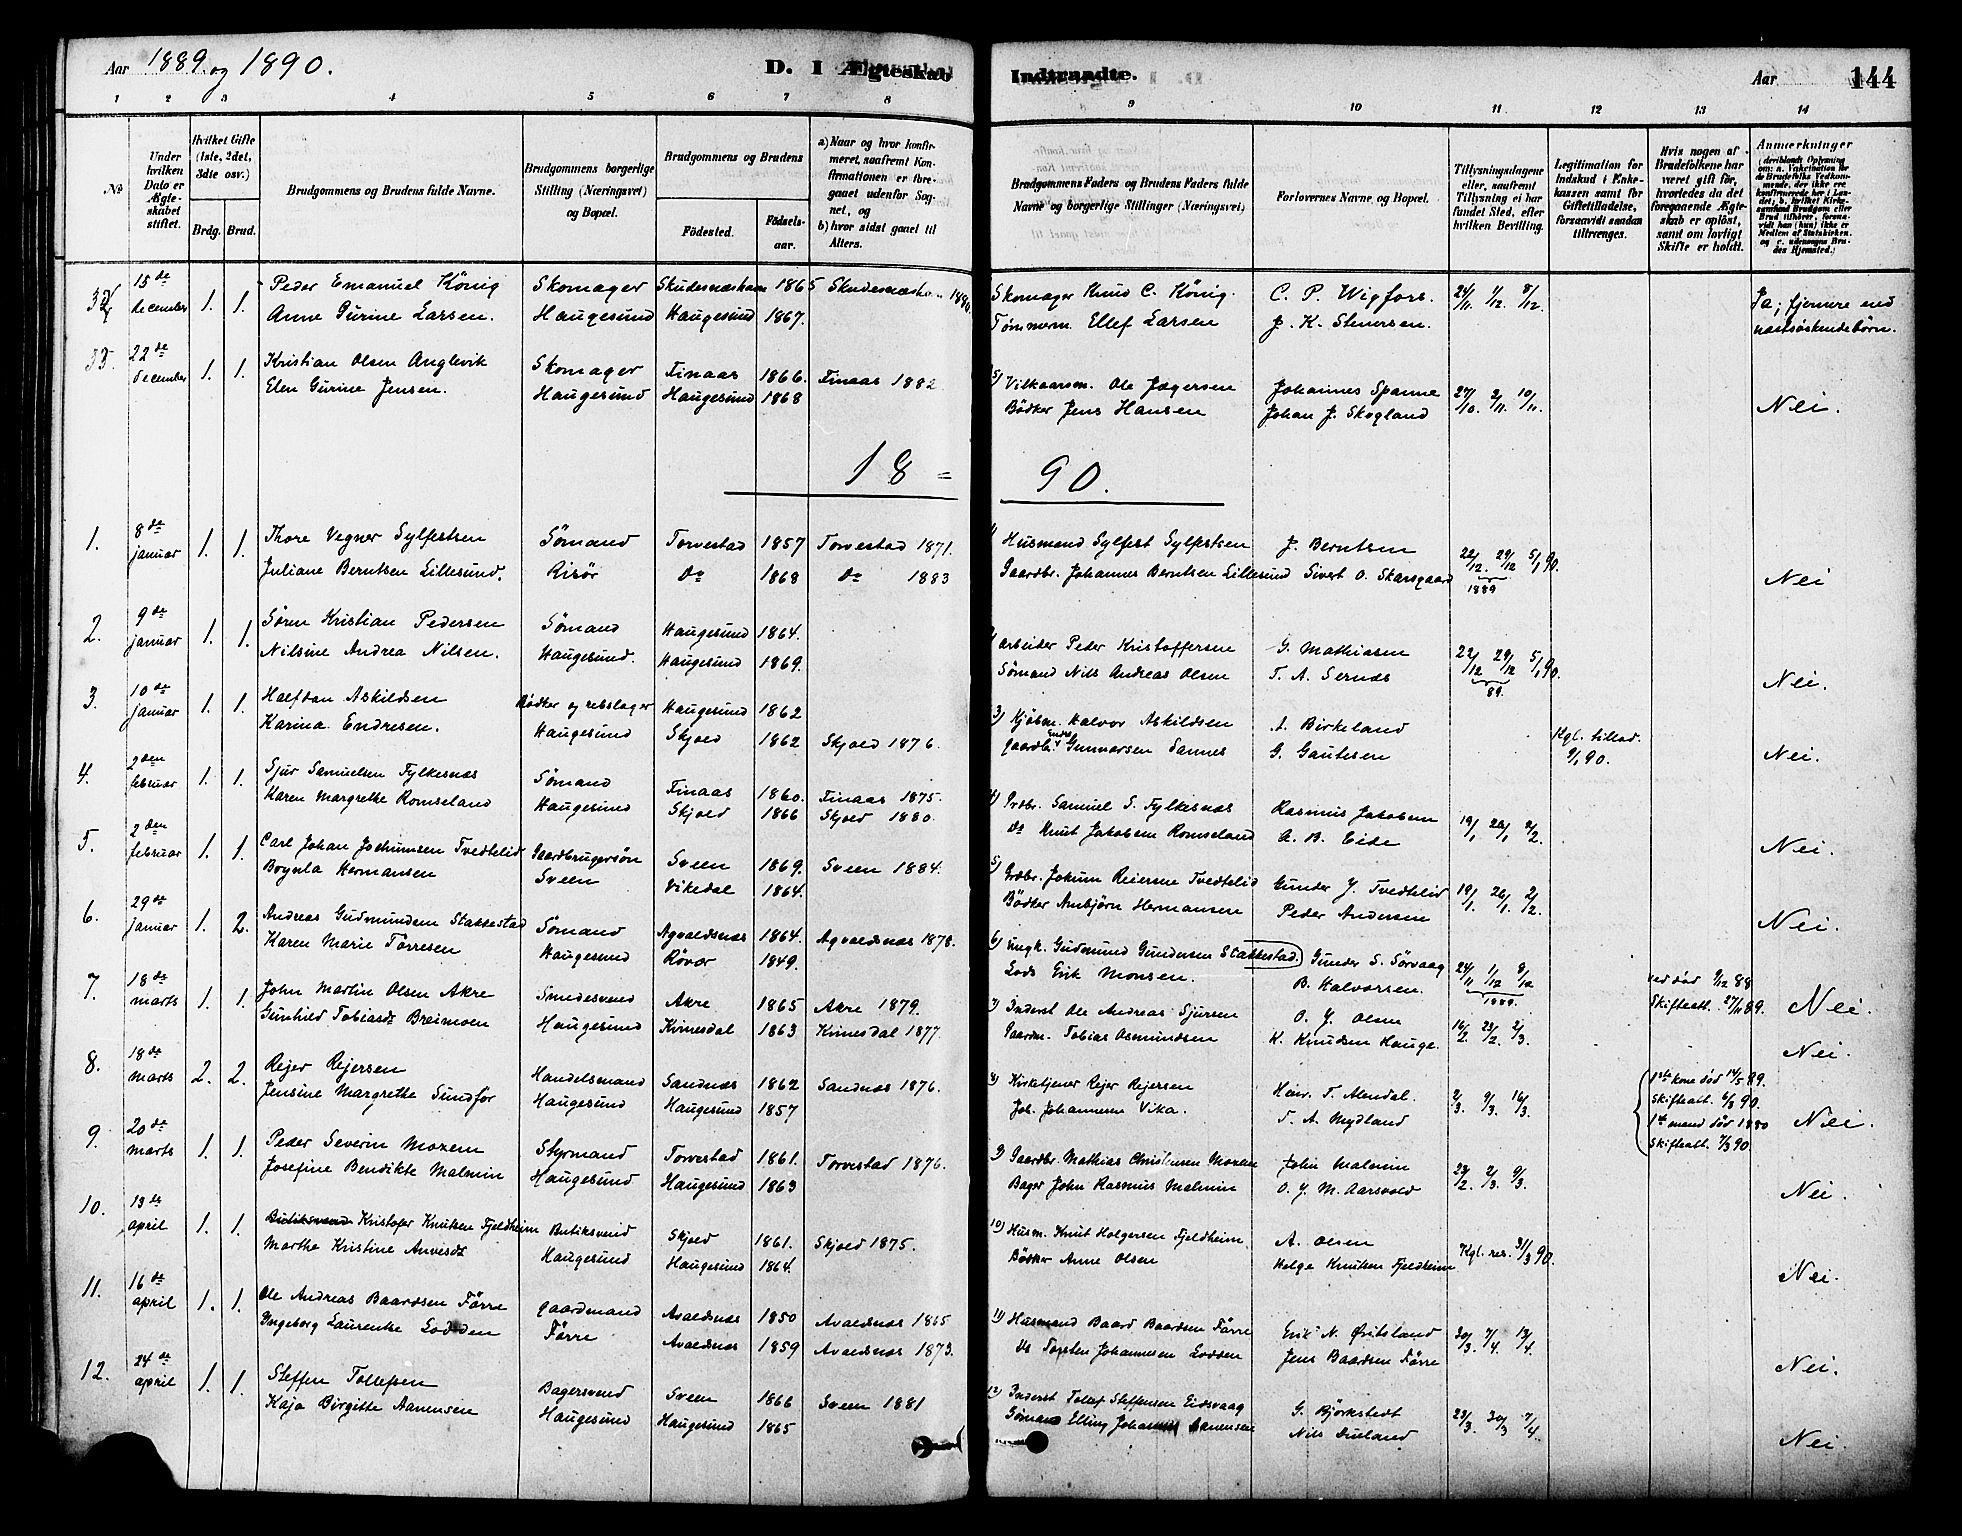 Aar 1889 og 1890.
D. I Ægteskab Indtraadte.
Aar 144
1 2 3 4 5 6 7 8 9 10 11 12 13 14
No
Under hvilken Dato er Ægteskabet stiftet.
Hvilket Gifte (1ste, 2det, 3die osv.)
Brdg. Brud.
Brudgommens og Brudens fulde Navne.
Brudgommens borgerlige Stilling (Næringsvei) og Bopæl.
Brudgommens og Brudens
Fødested. Fødsels-aar.
a) Naar og hvor konfirmeret, saafremt Konfirmationen er foregaaet udenfor Sognet, og
b) hvor sidst gaaet til Alters.
Brudgommens Faders og Brudens Faders fulde Navne og borgerlige Stillinger (Næringsvei)
Forlovernes Navne og Bopæl.
Tillysningsdagene eller, saafremt Tillysning ei har fundet Sted, efter hvilken Bevilling.
Legitimation for Indskud i Enkekassen samt for Giftetilladelse, forsaavidt saadan tiltrænges.
Hvis nogen af Brudefolkene har været gift før, hvorledes da det foregaaende Ægteskab er opløst, samt om lovligt Skifte er holdt.
Anmerkninger
34 15de december 1. 1. Peder Emanuel König Skomager Skudesnæshavn 1865 Skudesnæshavn 1880. Skomager Knud C. König. C. P. Wigfors. 24/11. 1/12. 8/12. Ja; fjernere end
Anne Gurine Larsen. Haugesund Haugesund 1867. Tømmerm. Ellef Larsen J. K. Stenersen. næstsøskendebørn.
35. 22de december 1. 1. Kristian Olsen Anglevik Skomager Finaas 1866. Finaas 1882. Vilkaarsm. Ole Jægersen Johannes Spanne 27/10. 2/11. 10/11. Nei.
Elen Gurine Jensen. Haugesund Haugesund 1868 Bödker Jens Hansen Johan J. Skogland
18 = 90.
1. 8de januar 1. 1. Thore Vegner Sylfestsen Sömand Torvestad 1857 Torvestad 1871. 1) Husmand Sylfest Sylfestsen J. Berntsen 22/12. 29/12 5/1 90.
Juliane Berntsen Lillesund. Risör do 1868 do 1883 Gaardbr. Johannes Berntsen Lillesund Sivert O. Skarsgaard 1889 Nei
2. 9de januar 1. 1. Sören Kristian Pedersen Sömand Haugesund 1864. arbeider Peder Kristoffersen G. Mathiasen 22/12 29/12 5/1 90.
Nilsine Andrea Nilsen. Haugesund. Haugesund 1869. Sömand Nils Andreas Olsen T. A. Sernæs 89. Nei.
3. 10de januar 1. 1. Halfdan Askildsen Bödker og rebslager Haugesund 1862 3) Kjöbm. Halvor Askildsen A. Birkeland Kgl. tillad.
Karina Endresen. Haugesund Skjold 1862 Skjold 1876. gaardb. Endre Gunnarsen Sannes G. Gautesen 9/1 90. Nei.
4. 2den februar 1. 1. Sjur Samuelsen Fylkesnæs Sömand Finaas 1860. Finaas 1875. 4) Grdbr. Samuel S. Fylkesnæs Rasmus Jakobsen 19/1 26/1 2/2.
Karen Margrethe Romseland Haugesund Skjold 1866 Skjold 1880. do Knut Jakobsen Romseland A. B. Eide Nei.
5. 2den februar 1. 1. Carl Johan Jochumsen Tvedtelid Gaardbrugersön Sveen 1869. Sveen 1884. 5) Grdbr. Jokum Reiersen Tvedtelid Gunder J. Tvedtelid 19/1. 26/1. 2/2.
Brynla Hermansen Sveen Vikedal 1864. Bödker Anbjörn Hermansen Peder Andersen Nei.
6. 29de januar 1. 2. Andreas Gudmundsen Stakkestad Sömand Agvaldsnæs 1864. Agvaldsnæs 1878. 6) ungk. Gudmund Gundersen Stakkestad. Gunder S. Sörvaag 24/11 1/12 8/12 ved död 9/12 88
Karen Marie Torresen Haugesund Rövær 1849. Lods Erik Monsen. B. Halvorsen. 1889. Skifteatt. 27/11 89. Nei.
7. 18de marts 1. 1. John Martin Olsen Akre Smedesvend Akre 1865 Akre 1879. 7) Inderst Ole Andreas Sjursen O. J. Olsen 16/2. 23/2. 2/3.
Gunhild Tobiasdr Breimoen Haugesund Kvinesdal 1863 Kvinesdal 1877. Gaardm. Tobias Osmundsen K. Knudsen Hauge. Nei.
8. 18de marts 2. 2. Rejer Rejersen Handelsmand Sandnæs 1862 Sandnæs 1876. Kirketjener Rejer Rejersen Heinr. T. Alendal. 2/3. 9/3. 16/3. 1ste kone död 14/5 89. Skifteatt. 6/3 90.
Jensine Margrethe Sundför Haugesund Haugesund 1857 Joh. Johannesen Vika. T. A. Mydland 1ste mand död 1880 Skifteatt. 7/3 90 Nei.
9. 20de marts 1. 1. Peder Severin Moxem Styrmand Torvestad 1861. Torvestad 1876. Gaardbr. Mathias Christensen Moxem John Malmin 23/2. 2/3. 9/3.
Josefine Bendikte Malmin Haugesund Haugesund 1863 Bager John Rasmus Malmin O. J. M. Aarsvold Nei.
10. 13de april 1. 1. Kristofer Knutsen Fjeldheim Butiksvend Skjold 1861. Skjold 1875. 10) Husm. Knut Holgersen Fjeldheim A. Olsen Kgl. res. 31/3 90.
Martha Kristine Arnesdr Haugesund Haugesund 1864. Bödker Arne Olsen Helge Knutsen Fjeldheim Nei.
11. 16de april 1. 1. Ole Andreas Baardsen Förre gaardmand Avaldsnæs 1850 Avaldsnæs 1865 11) Husmand Baard Baardsen Förre Erik N. Øritsland 30/3. 7/4. 13/4.
Ingeborg Laurentse Lodden Förre Avaldsnæs 1859 Avaldsnæs 1873. Do Torsten Johannesen Lodden Jens Baardsen Förre Nei.
12. 24de april 1. 1. Steffen Tollefsen Bagersvend Sveen 1866 Sveen 1881 12) Inderst Tollef Steffensen Eidsvaag G. Björkstedt 23/3. 30/3 7/4
Kaja Birgitte Aanensen Haugesund Haugesund 1865 Sömand Elling Johan Aanensen Nils Dueland Nei.